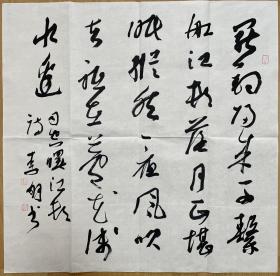 罢钓归来不系
船江村落月正堪
眠纵然一夜风吹
去只在芦花浅
水边
司空曙江村
诗
书